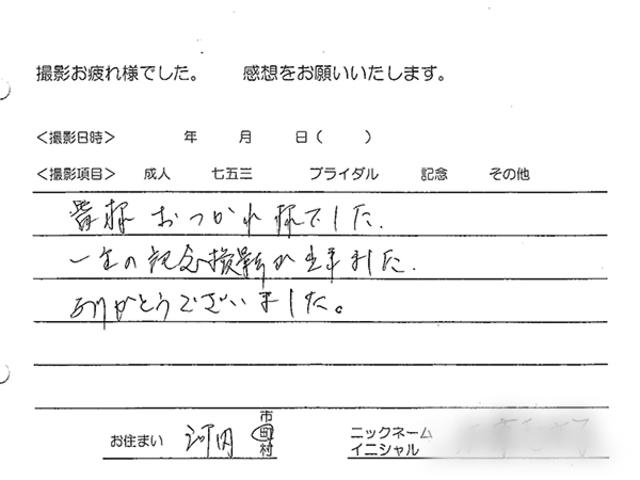 撮影お疲れ様でした。 感想をお願いいたします。
<撮影日時> 年 月 日( )
<撮影項目> 成人 七五三 ブライダル 記念 その他
皆様 おつかれ様でした.
一生の記念撮影が出来ました.
ありがとうございました。
お住まい 河内 市町村
ニックネーム
イニシャル